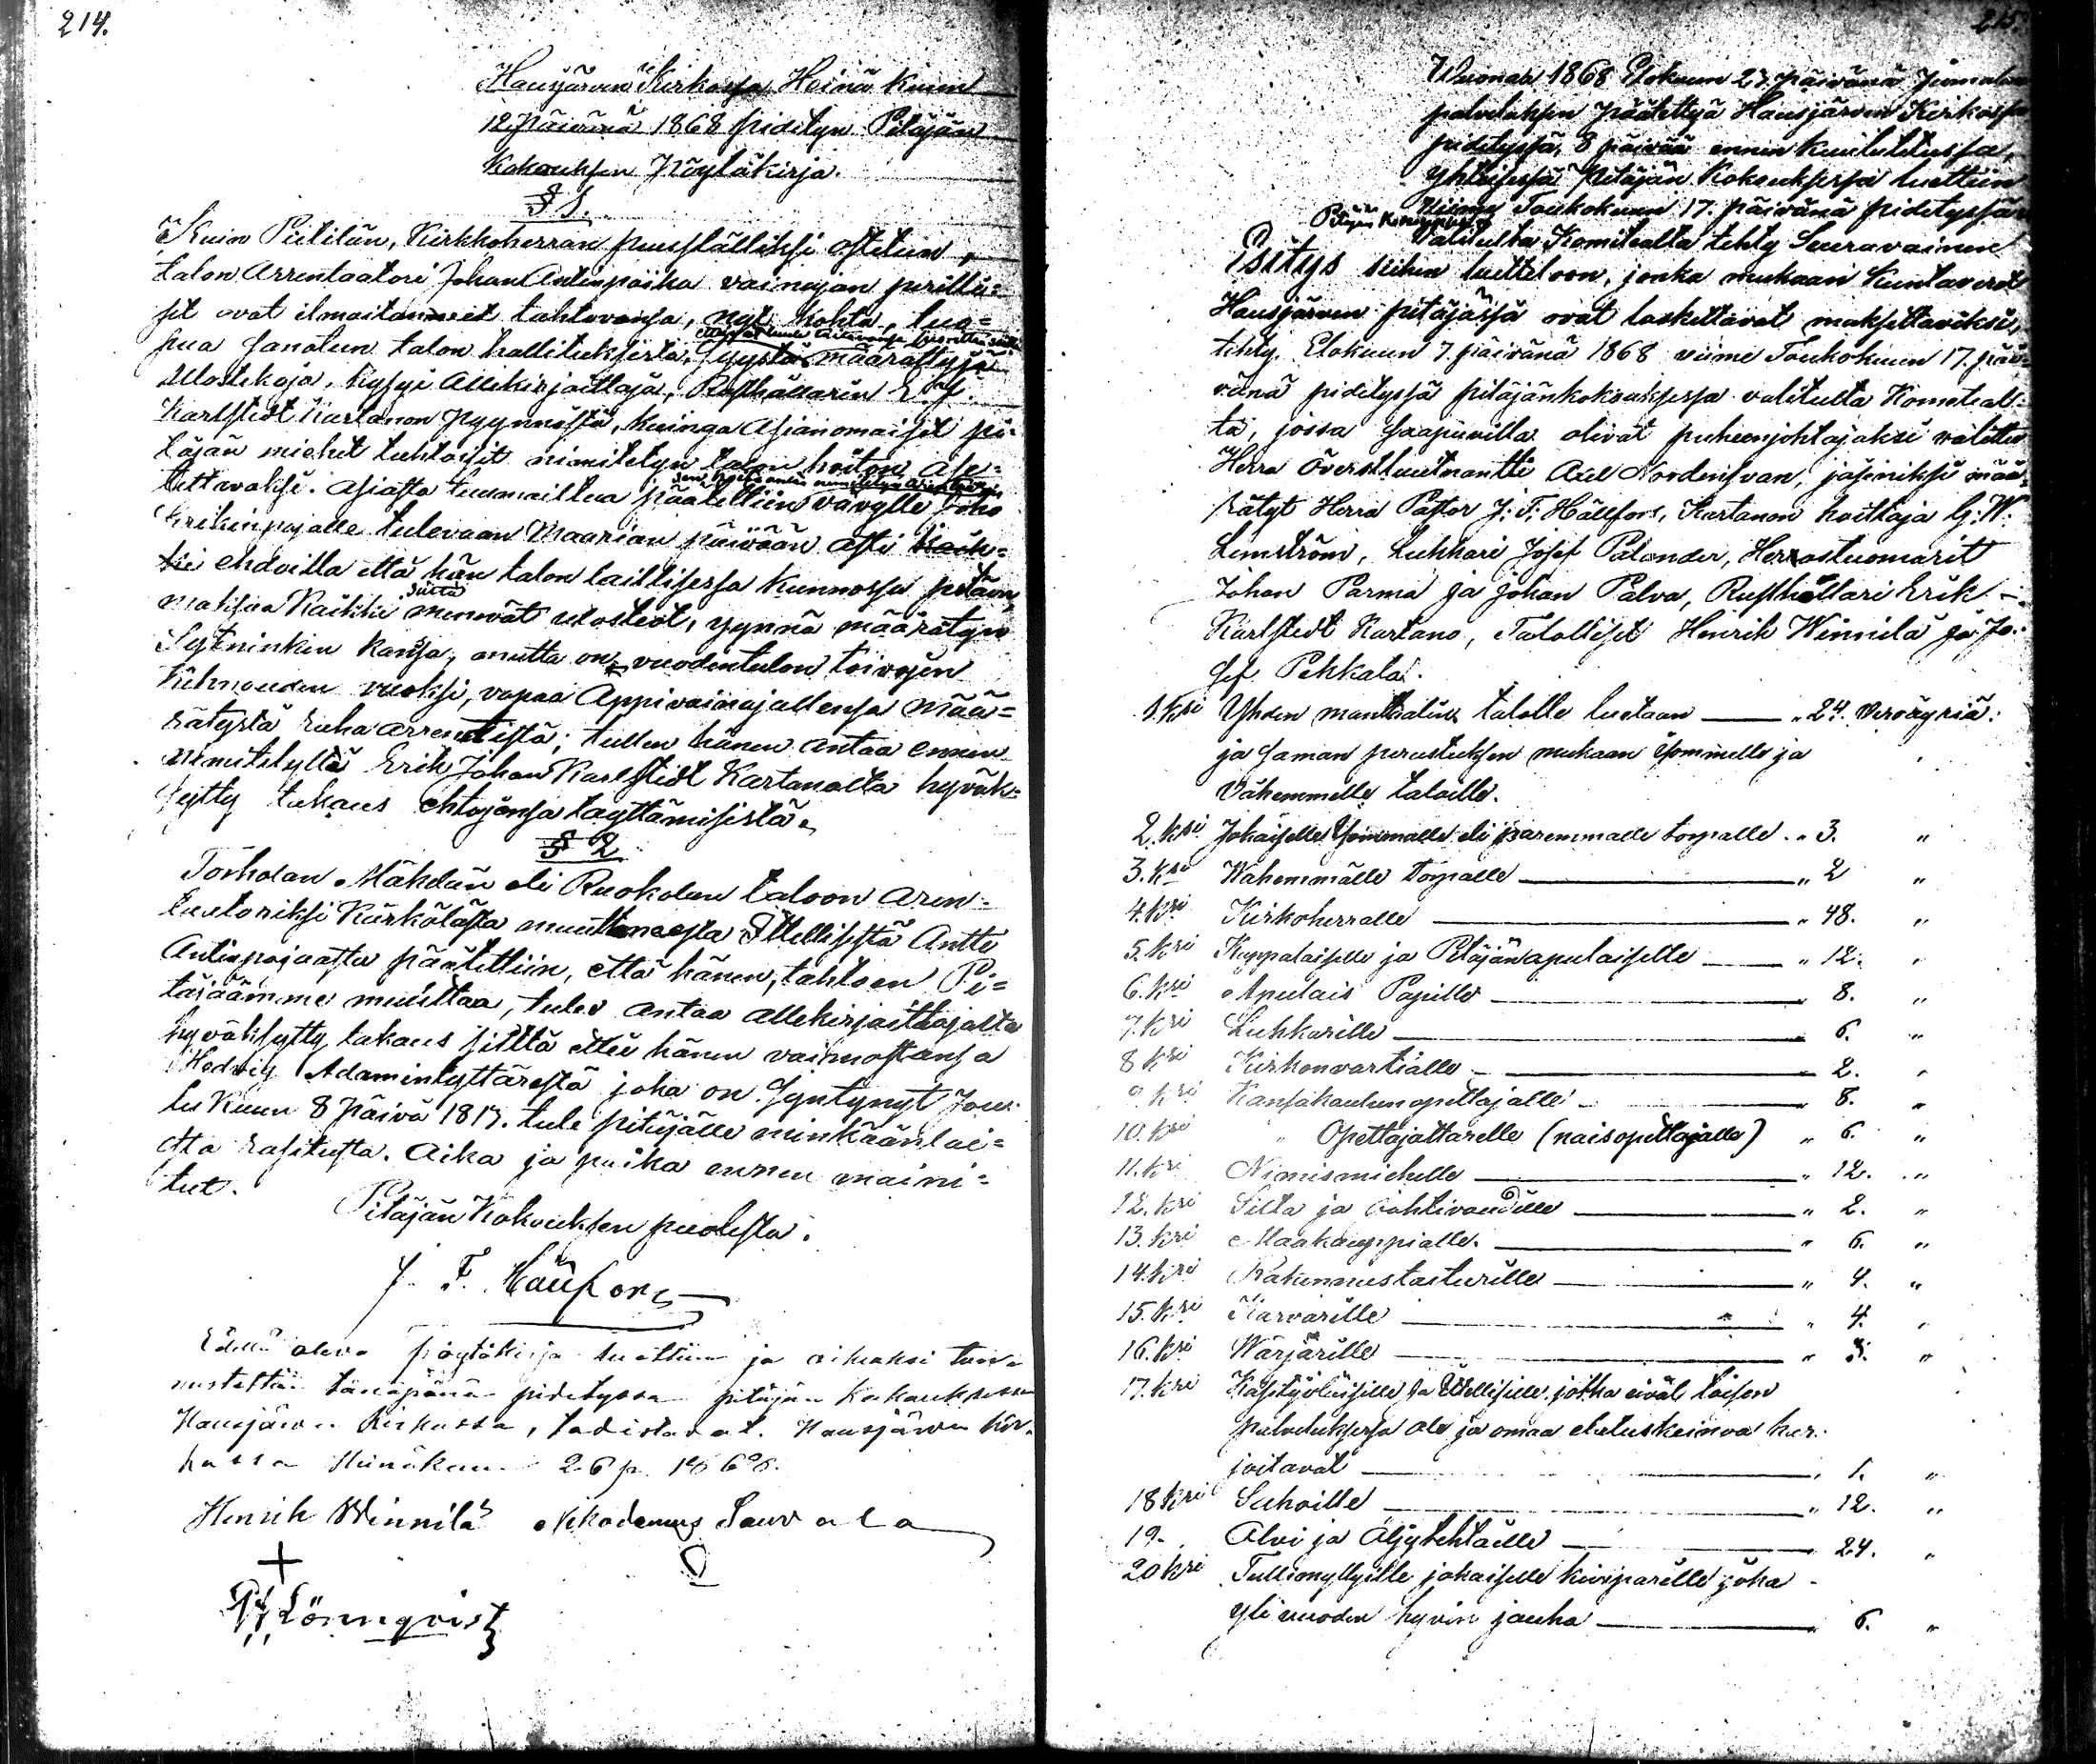 214.
Hausjärven Kirkossa Heinä kuun
12 päivänä 1868 pidetyn Pitäjän
Kokouksen Pöytäkirja.
§ 1.
Kuin Pietilän, Kirkkoherran puuställiksi ostetun,
talon Arrentaatori Johan Antinpoika vainajan perilli=
set ovat ilmoitanneet tahtovansa, nyt kohta, luo=
pua sanotun talon hallituksesta, syystä määrättyjä
Ulostekoja, kysyi Allekirjoittaja, Rusthållarin E. J.
Karlstedt Kartanon pyynnöstä, kuinga Asianomaiset pi=
täjän miehet tuhtoisit nimitetyn talon hoiton ase=
tettavaksi. Asiasta tuumailtua päätettiin vävylle Joho
Erikinpojalle tulevaan Maarian päivään asti
ehdoilla että hän talon laillisessa kunnossa pitävä,
maksaa Kaikki siitä menevät ulosteot, ynnä määrätyn
Sytninkin kansa, mutta on vuodentulon toivojen
tähnouden vuoksi, vapaa Appivainajallensa mää=
rätystä raha arrentista; tullen hänen antaa ennen
nimitetyltä Erik Johan Karlstedt Kartanolta hyväk=
sytty takaus ehtojensa täyttämisestä.
§ 2
Torholan Mäkelän eli Ruokolan taloon Aren=
taatoriksi Kärkölästä muuttaneesta Itellisestä Antti
Antinpojaasta päätettiin, että hänen, tahtoen Pi=
täjäämme muuttaa, tulee antaa allekirjoittajalta
hyväksytty takaus siittä ettei hänen vaimostansa
Hedvig Adamintyttärestä joka on syntynyt Jou=
lu kuun 8 päivä 1817. tule pitäjälle minkäänlai=
sta rasitusta. Aika ja paika ennen maini=
tut.
Pitäjän Kokouksen puolesta.
J. F. Hällfors
Edellä oleva pöytäkirja luettiin ja oikiaksi tun=
nustettiin tänäpänä pidetyssa pitäjän kokouksessa
Hausjärven Kirkossa, todistavat. Hausjärven kir=
kossa Heinäkuun 26 p. 1868.
Henrik Winnilä Nikodemus Sauvala
Lönnqvist
215.
Wuonna 1868 Elokuun 23 päivänä Jumalan
palveluksen päätettyä Hausjärven Kirkossa
pidetyssä, 8 päivää ennen kuulutetussa,
yhteisessä Pitäjän Kokouksessa luettiin
viime Toukokuun 17. päivänä pidetyssä
Pitäjän Kokouksessa
Valitulta Komitealta tehty Seuravainen
Esitys siihen luetteloon, jonka mukaan Kuntaverot
Hausjärven pitäjässä ovat laskettavat maksettaviksi,
tehty Elokuun 7. päivänä 1868 viime Toukokuun 17. päi=
vänä pidetyssä pitäjänkokouksessa valitulta Komiteal=
ta, jossa saapuvilla olivat puheenjohtajaksi valittu
Herra Överstluitnantti Axel Nordensvan, jäseniksi mää=
rätyt Herra Pastor J: F: Hällfors, Kartanon hoittaja G: W:
Limström, Lukkari Josef Palander, Herrastuomarit
Johan Parma ja Johan Palva, Rusthollari Erik
Karlstedt Kartano, Talolliset Henrik Winnilä ja Jo=
sef Pehkala.
1.ksi Yhden manttalin talolle luetaan — „ 24. Veroäyriä:
ja saman perustuksen mukaan isommille ja
Vähemmille taloille.
2.ksi Jokaiselle Isommalle eli paremmalle torpalle. „ 3. „
3.ksi Wähemmälle torpalle — „ 2 „
4.ksi Kirkoherralle — „ 48. „
5.ksi Kappalaiselle ja Pitäjänapulaiselle — „ 12. „
6.ksi Apulais Papille — 8. „
7.ksi Lukkarille — 6. „
8 ksi Kirkonvartialle — 2. „
9.ksi Kansakoulunopettajalle — 8. „
10.ksi „ Opettajattarelle (naisopettajalle) „ 6. „
11.ksi Nimismiehelle — „ 12. „
12.ksi Silta ja vahtivoudille — „ 2. „
13.ksi Maakauppialle. — „ 6. „
14.ksi Rakennustasturille — „ 4. „
15.ksi Karvarille — „ 4. „
16.ksi Wärjärille — „ 3. „
17.ksi Käsityöläisille ja Itellisille, jotka eivät toisen
palveluksessa ole ja omaa elatuskeinoa har=
joitavat — 1. „
18 ksi Sahoille — „ 12. „
19. Olvi ja Öljytehtaille — 24. „
20 ksi Tullimyllyille jokaiselle kiviparille joka
yli vuoden hyvin jauha — 6. „